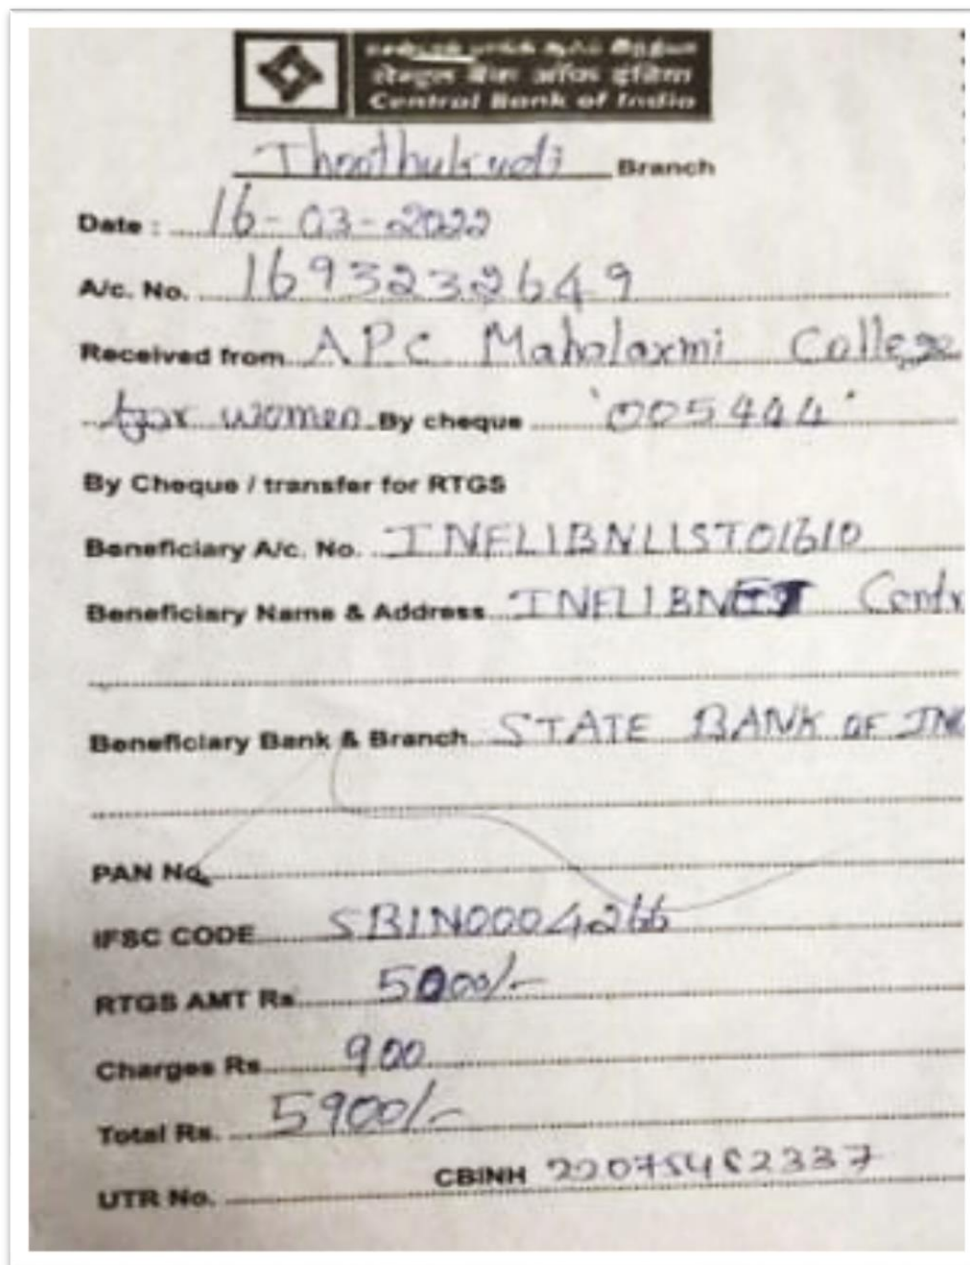 சென்ட்ரல் பாங்க் ஆஃப் இந்தியா
सेन्ट्रल बैंक ऑफ इंडिया
Central Bank of India
Thoothukudi Branch
Date : 16-03-2022
A/c. No. 1693232649
Received from APC Mahalaxmi College
for women By cheque '005444'
By Cheque / transfer for RTGS
Beneficiary A/c. No. INFLIBNLIST01610
Beneficiary Name & Address INFLIBNET Centr
Beneficiary Bank & Branch STATE BANK OF IND
PAN No.
IFSC CODE SBIN0004266
RTGS AMT Rs 5000/-
Charges Rs 900
Total Rs. 5900/-
UTR No. CBINH